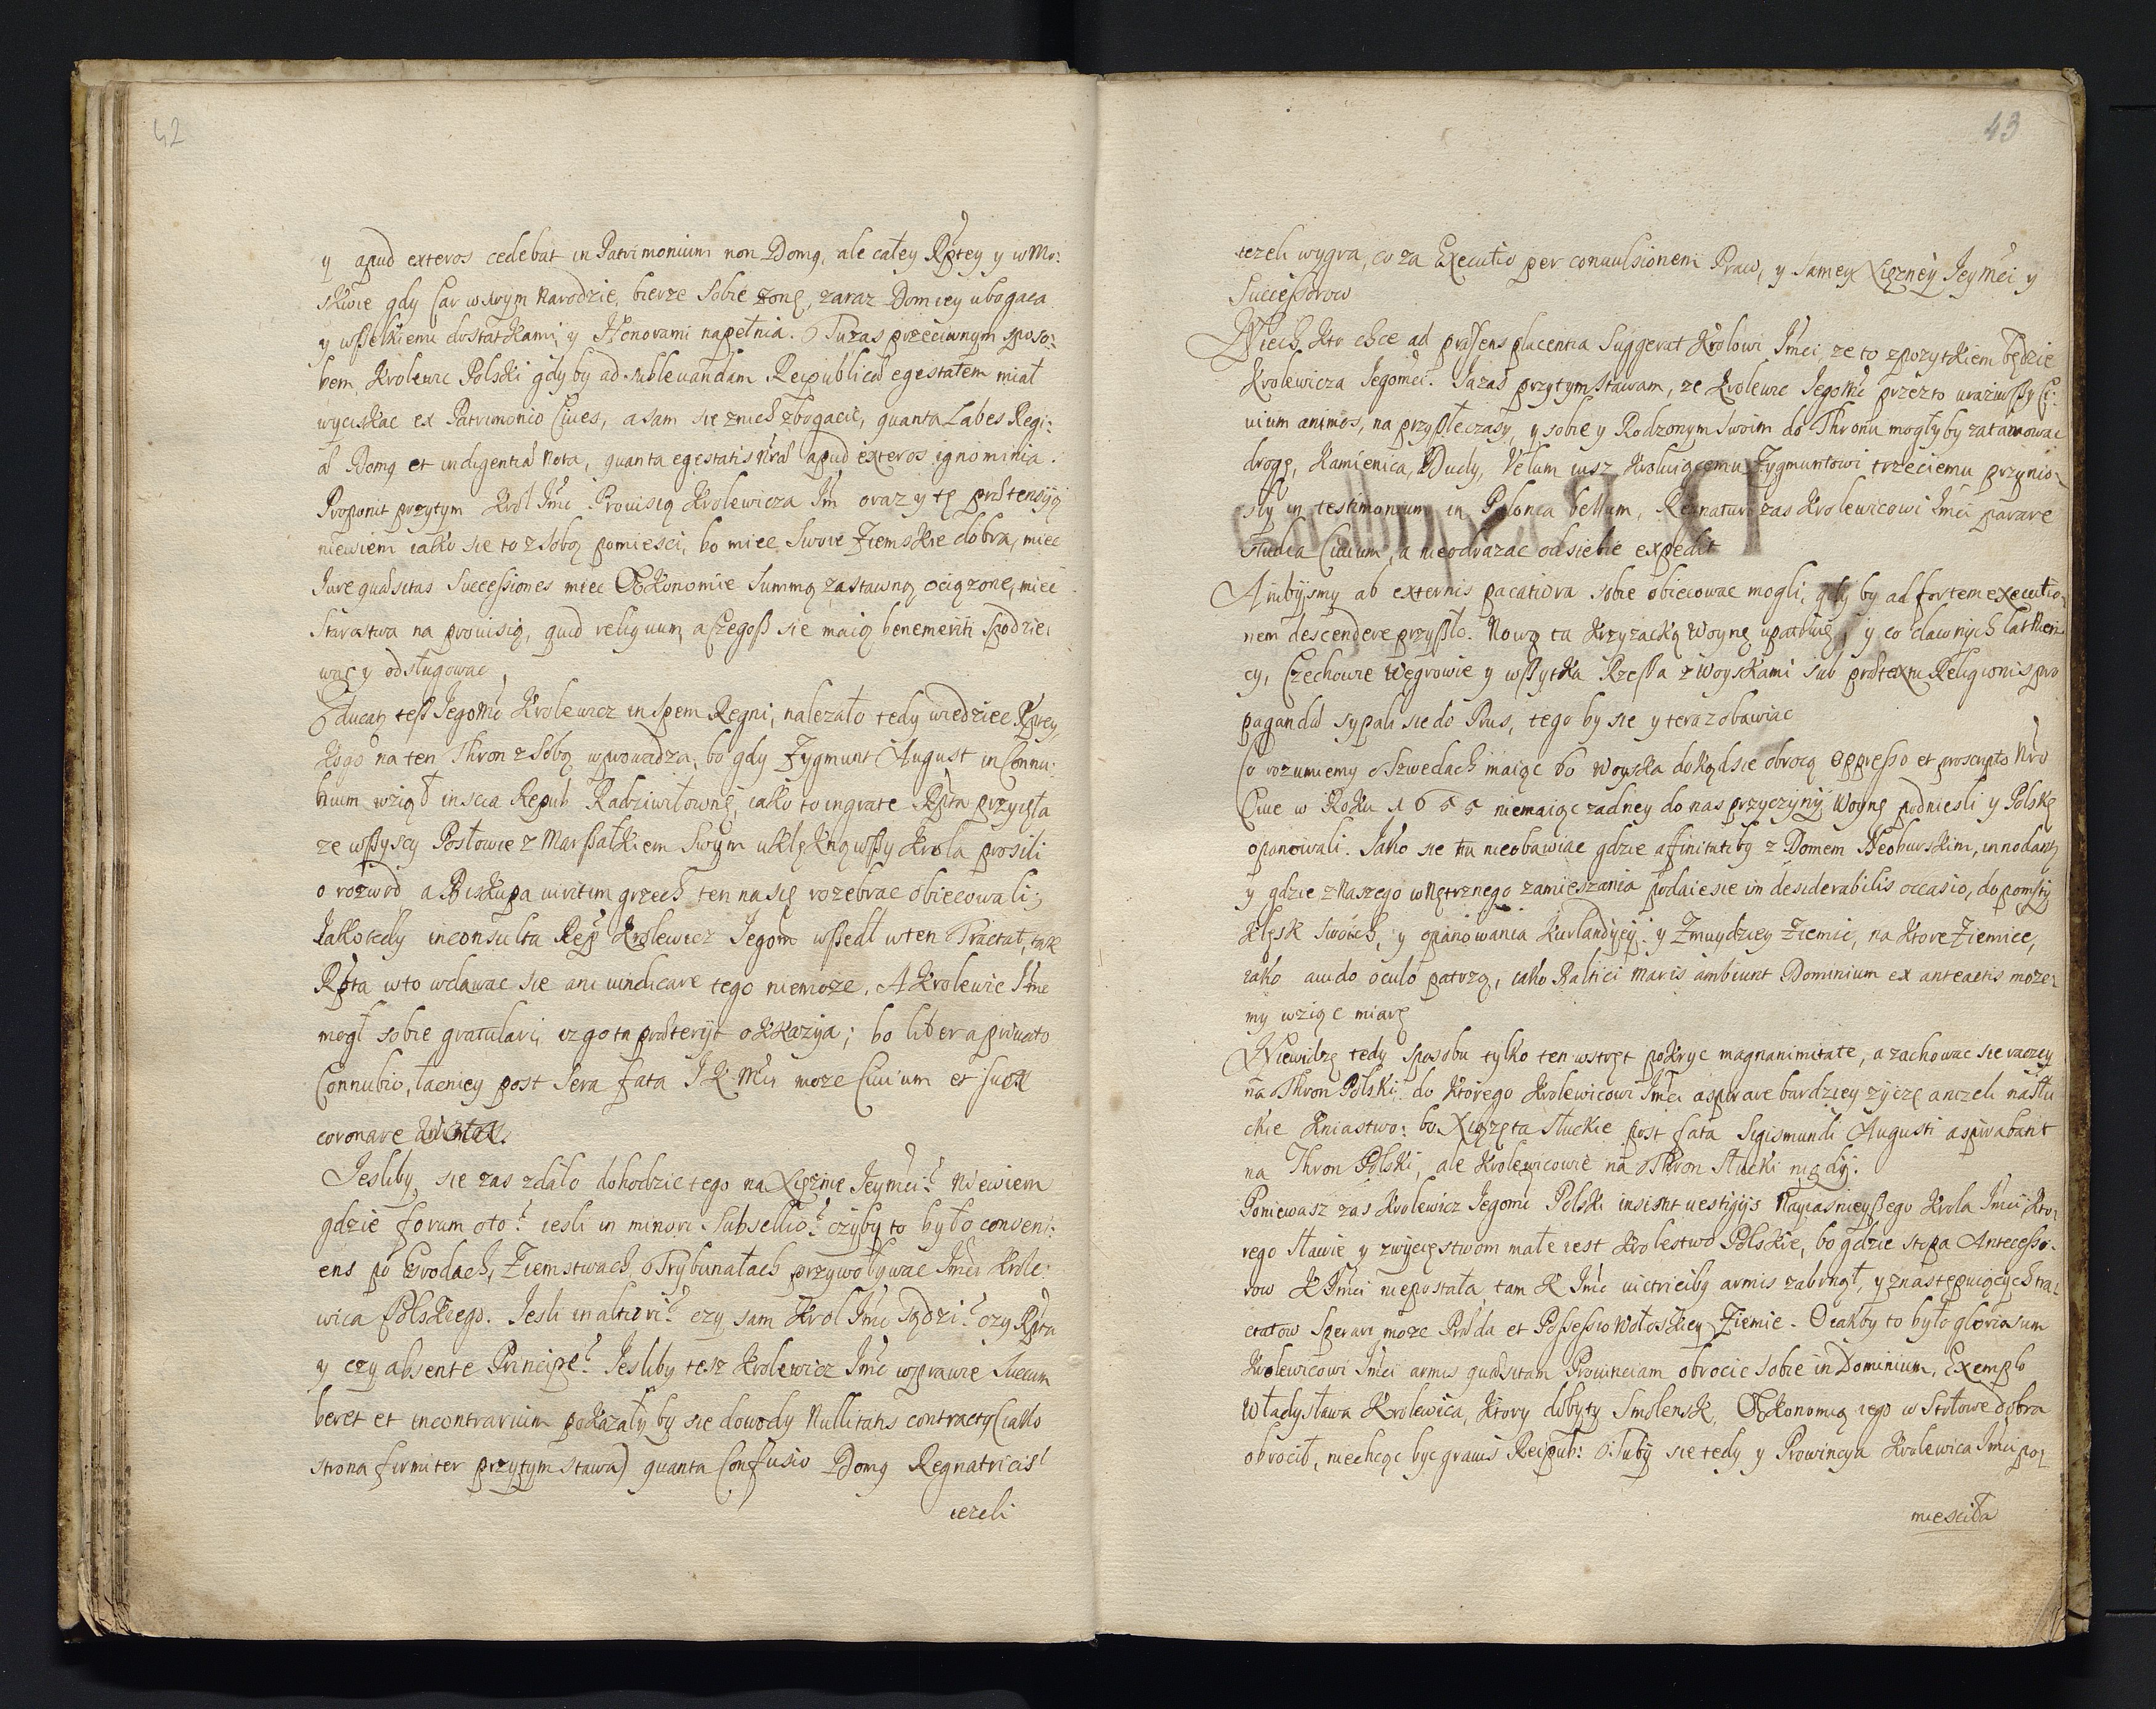 42
y apud exteros cedebat in Patrimonium non Domų, ale całey Rptey y w Mo:
skwie gdy Car w swym Narodzie, bierze sobie zonę, zaraz Dom iey ubogaca
y wszelkiemi dostatkami y Honorami napełnia. Tu zas przeciwnym sposo:
bem Krolewic Polski gdyby ad sublevandam Reipublicæ egestatem miał
wyciskac ex Patrimonio Cives, a sam sie z nich zbogacić, quanta Labes Regi:
æ Domq et indigentiæ Nota, quanta egestatis nræ apud exteros ignominia.
Proponit przytym Krol Jmć Prowisią Krolewicza Jm oraz y tę prætensyią
niewiem iako sie to z sobą pomiesci, bo miec Swoie Ziemskie dobra, miec
Jure quæsitas Successiones miec Œkonomie Summą zastawną ociązone, miec
Starostwa na prouisią, quid reliquum, a Czegosz sie maią benemeriti Spodzie:
wac y odsługowac
Educatq tesz Jegomć Krolewicz in spem Regni, nalezało tedy wiedziec Rptey
kogo na ten Thron z Sobą wprowadza, bo gdy Zygmunt August in Connu:
bium wziął inscia Repub Radziwiłownę, iako to ingrate Rpta przyięła
ze wszyscy Posłowie z Marszałkiem Swym uklęknąwszy Krola prosili
o rozwod a Biskupa viritim grzech ten na się rozebrac obiecowali;
Jako tedy inconsulta Rep Krolewicz Jegom wszedł w ten Tractat, tak
Rpta w to wdawac sie ani vindicare tego niemoże. A Krolewic Jmć
mogł sobie gratulari, iz go ta præteriit okkazyia; bo liber a privato
Connubio, łacniey post sera fata J K Mci moze Civium et sua
coronare
Jesliby sie zas zdało dohodzic tego na Xięznie Jeymci? Niewiem
gdzie forum oto? iesli in minori Subsellio? czyby to było conveni:
ens po Grodach, Ziemstwach, Trybunałach przywoływac Jmci Krole:
wica Polskiego. Jesli in altiori? czy sam Krol Jmć sądzi? czy Rpta
y czy absente Principe? Jesliby tesz Krolewicz Jmć w sprawie Succum
beret et in contrarium pokazały by sie dowody Nullitatis contractq (iako
strona firmiter przytym stawa) quanta Confusio Domq Regnatricis!
iezeli
43
iezeli wygra, co za Executio per convulsionem Praw, y samey Xięzney Jeymci y
Successorow
Niech kto chce ad præsens placentia Suggerat Krolowi Jmci, ze to z pozytkiem będzie
Krolewicza Jegomci. Ja zas przytym stawam, ze Krolewic Jegomć przezto uraziwszy Ci:
vium animos, na przyszłe czasy, y sobie y Rodzonym Swoim do Thronu mogłyby zatamowac
drogę, Kamienica, Dudy, Velum iusz Kroluiącemu Zygmuntowi trzeciemu przynio:
sły in testimonium in Polonca bellum, Regnaturo zas Krolewicowi Jmci parare
studia Civium, a nieodrazac od siebie expedit
A nibyismy ab externis pacatiora sobie obiecowac mogli, gdy by ad fortem executio:
nem descendere przyszło. Nową tu Krzyzacką Woynę upatruię, y co dawnych lat Niem
cy, Czechowie Węgrowie y wszytka Rzesza z Woyskami sub prætextu Religionis pro
pagandæ sypali sie do Prus, tego by sie y teraz obawiac
Co rozumiemy o Szwedach maiąc bo Woyska dokąd sie obrocą oppresso et proscripto Nro
Cive w Roku 1655 niemaiąc zadney do nas przyczyny Woynę podniesli y Polskę
opanowali. Jako sie tu nieobawiac gdzie afinitatiby z Domem Neoburskim, innodantq
y gdzie z Naszego wnętrznego zamieszania podaie sie im desiderabilis occasio, do pomsty
klęsk swoich, y opanowania Kurlandyiy y Zmuydzkiey Ziemie, na ktore Ziemice,
iako avido oculo patrzą, iako Baltici Maris ambiunt Dominium ex anteactis moze:
my wziąc miarę
Niewidzę tedy sposobu tylko ten wstręt pokryc magnanimitate, a zachowac sie raczey
na Thron Polski, do ktorego Krolewicowi Jmci aspirare bardziey zyczę anizeli na Słu
ckie Kniastwo: bo Xiązęta Słuckie post fata Sigismundi Augusti aspirabant
na Thron Polski, ale Krolewicowie na Thron Słucki nigdy.
Poniewasz zas Krolewicz Jegomć Polski insistit vestigijs Nayiasnieyszego Krola Jmci, kto:
rego sławie y zwycięstwom małe iest Krolestwo Polskie, bo gdzie stopa Antecesso:
row K Jmci niepostała tam K Jmć victricibq armis zabrnął, y z następuiących tra:
ctatow Sperari moze Præda et Possessio Wołoskiey Ziemie. O iakby to było gloriosum
Krolewicowi Jmci armis quæsitam Provinciam obrocic sobie in Dominium, Exemplo
Władysława Krolewica, ktory dobyty Smolensk, Œkonomią iego w Stołowe dobra
obrocił, niechcąc byc gravis Reipub: Tuby sie tedy y Prowincya Krolewica Jmci po:
miesciła